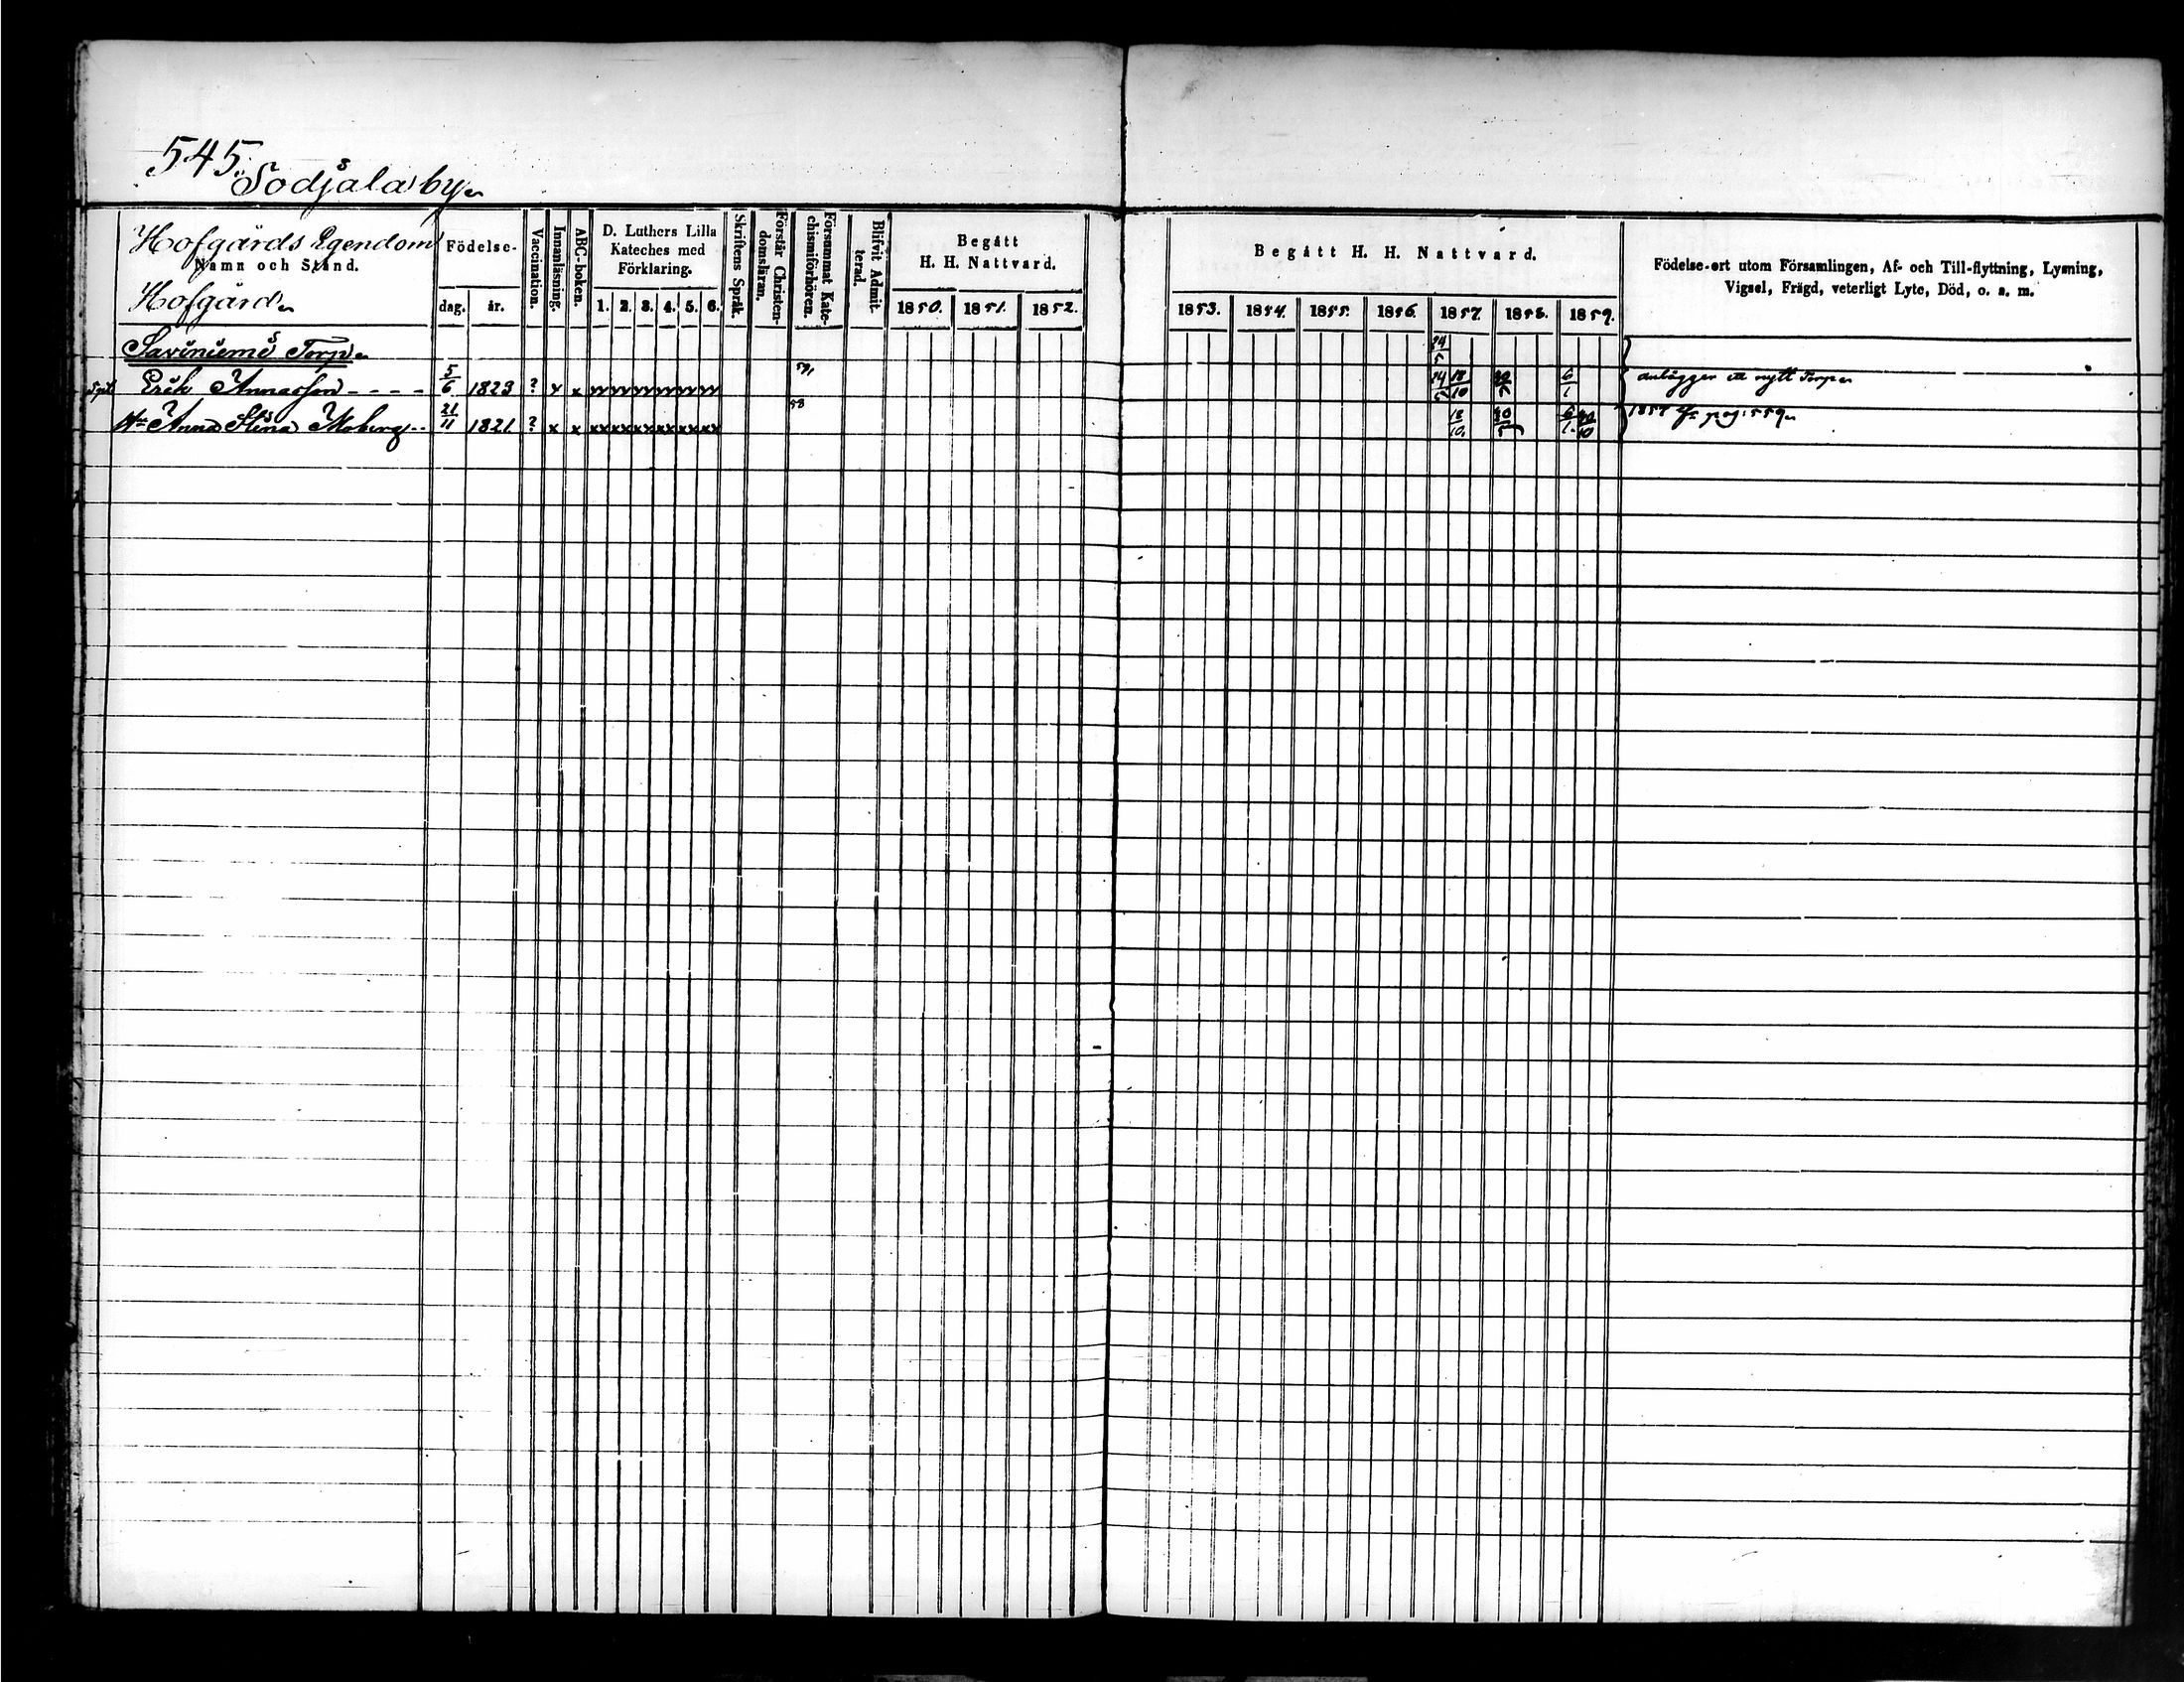 545.
Sodjala by.
Hofgårds Egendom
Namn och Stånd.
Hofgård.
Födelse-
dag. år.
Vaccination.
Innanläsning.
ABC-boken.
D. Luthers Lilla
Kateches med
Förklaring.
1. 2. 3. 4. 5. 6.
Skriftens Språk.
Förstår Christen-
domsläran.
Försummat Kate-
chismiförhören.
Blifvit Admit-
terad.
Begått
H. H. Nattvard.
1850. 1851. 1852.
Begått H. H. Nattvard.
1853. 1854. 1855. 1856. 1857. 1858. 1859.
Födelse-ort utom Församlingen, Af- och Till-flyttning, Lysning,
Vigsel, Frägd, veterligt Lyte, Död, o. s. m.
Saviniemi Torp. 24/5
Erik Annasson 5/6 1823 ? x x 59, 24/5 18/10 30/5 6/1 anlägger ett nytt Torp
Anna Stina Moberg 21/11 1821 ? x x xx xx xx xx xx xx 58 18/10 30/5 6/1 1857 fr. pag: 559.